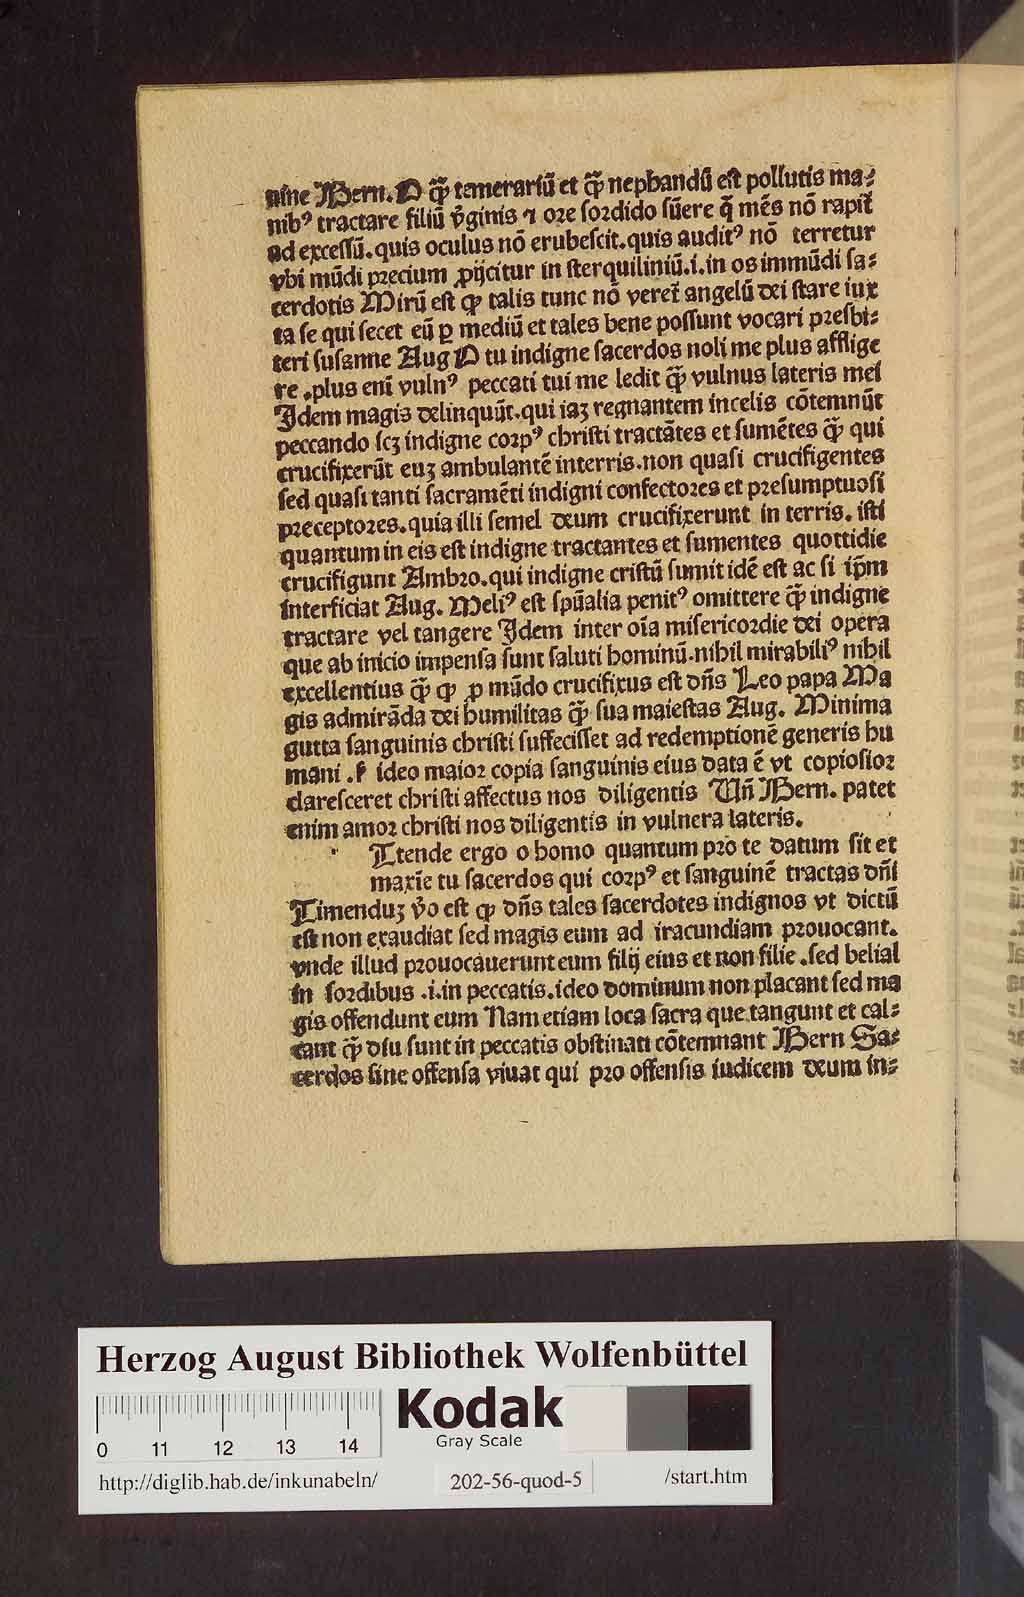 nine Bern. O q̄ꝫ temerariū et q̄ꝫ nephandū est pollutis ma⸗
nibꝰ tractare filiū v̓ginis ⁊ ore sordido sūere q̄ mēs nō rapit̄
ad excessū. quis oculus nō erubescit. quis auditꝰ nō terretur
vbi mūdi precium ꝓijcitur in sterquiliniū .i. in os immūdi sa⸗
cerdotis Mirū est qꝫ talis tunc nō veret̄ angelū dei stare iux
ta se qui secet eū ꝑ mediū et tales bene possunt vocari presbi⸗
teri susanne Aug O tu indigne sacerdos noli me plus afflige
re .plus enī vulnꝰ peccati tui me ledit q̄ꝫ vulnus lateris mei
Idem magis delinquūt. qui iaꝫ regnantem incelis cōtemnūt
peccando scꝫ indigne corpꝰ christi tractātes et sumētes q̄ꝫ qui
crucifixerūt euꝫ ambulantē interris. non quasi crucifigentes
sed quasi tanti sacramēti indigni confectores et presumptuosi
preceptores. quia illi semel deum crucifixerunt in terris. isti
quantum in eis est indigne tractantes et sumentes quottidie
crucifigunt Ambro. qui indigne cristū sumit idē est ac si ip̄m
interficiat Aug. Meliꝰ est spūalia penitꝰ omittere q̄ꝫ indigne
tractare vel tangere Idem inter oīa misericordie dei opera
que ab inicio impensa sunt saluti hominū. nihil mirabiliꝰ nihil
excellentius q̄ꝫ qꝫ ꝓ mūdo crucifixus est dn̄s Leo papa Ma
gis admirāda dei humilitas q̄ꝫ sua maiestas Aug. Minima
gutta sanguinis christi suffecisset ad redemptionē generis hu
mani .s ideo maior copia sanguinis eius data ē vt copiosior
claresceret christi affectus nos diligentis Un̄ Bern. patet
enim amor christi nos diligentis in vulnera lateris.
Ttende ergo o homo quantum pro te datum sit et
maxīe tu sacerdos qui corpꝰ et sanguinē tractas dn̄i
Timenduꝫ v̓o est qꝫ dn̄s tales sacerdotes indignos vt dictū
est non exaudiat sed magis eum ad iracundiam prouocant.
vnde illud prouocauerunt eum filij eius et non filie .sed belial
in sordibus .i. in peccatis. ideo dominum non placant sed ma
gis offendunt eum Nam etiam loca sacra que tangunt et cal⸗
cant q̄ꝫ diu sunt in peccatis obstinati cōtemnant Bern Sa⸗
cerdos sine offensa viuat qui pro offensis iudicem deum in⸗
Herzog August Bibliothek Wolfenbüttel
Kodak
Gray Scale
0 11 12 13 14
http://diglib.hab.de/inkunabeln/ 202-56-quod-5 /start.htm